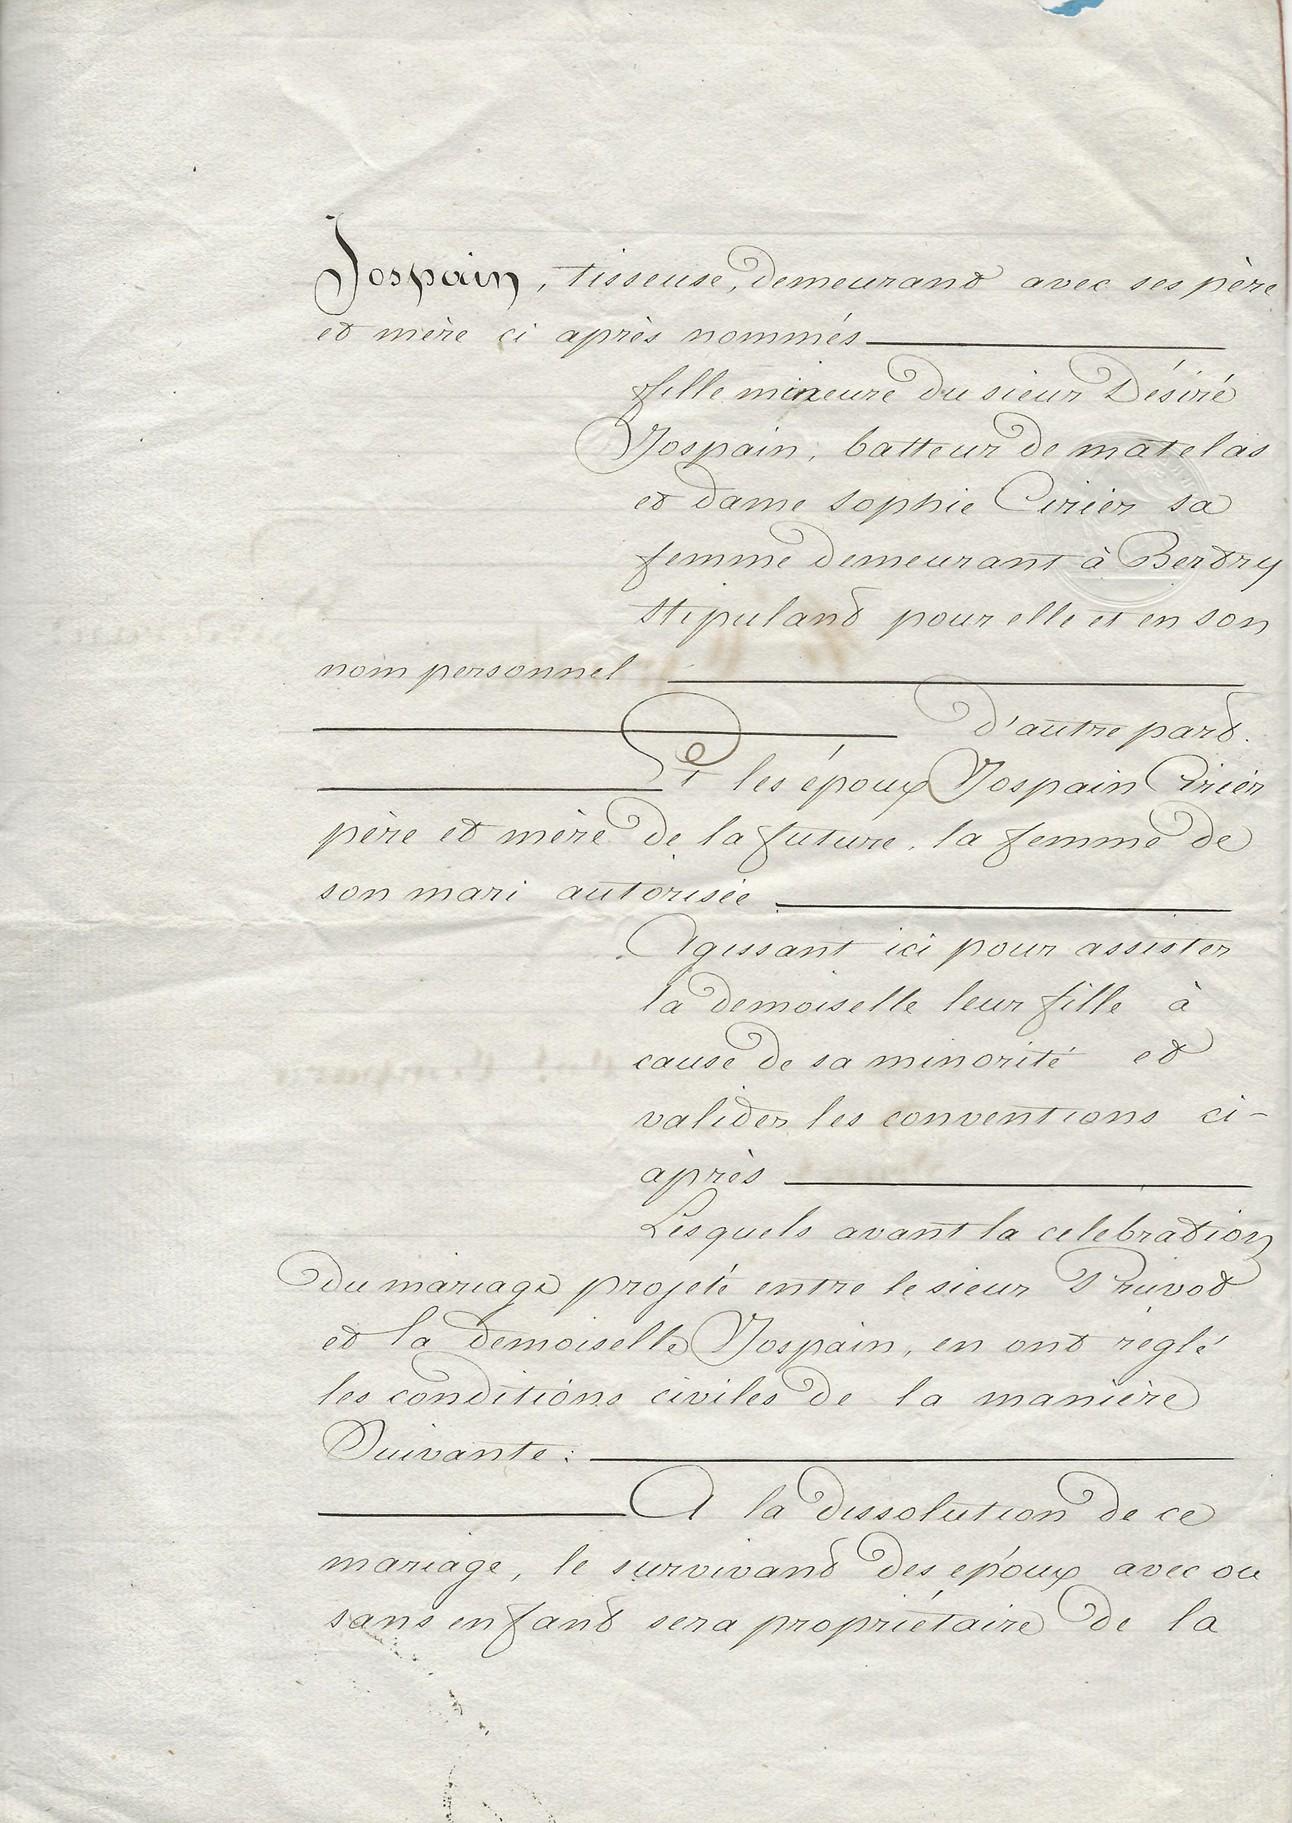 Jospain, tisseuse, demeurant avec ses père
et mère ci après nommés
fille mineure du sieur Désiré
Jospain, batteur de matelas
et dame Sophie Cirier sa
femme demeurant à Bertry
stipulant pour elle et en son
nom personnel
d'autre part.
Et les époux Jospain Cirier
père et mère de la future, la femme de
son mari autorisée
Agissant ici pour assister
la demoiselle leur fille à
cause de sa minorité et
valider les conventions ci-
après
Lesquels avant la celebration
du mariage projeté entre le sieur Pruvot
et la demoiselle Jospain, en ont réglé
les conditions civiles de la manière
Suivante :
A la dissolution de ce
mariage, le survivant des époux avec ou
sans enfant sera propriétaire de la